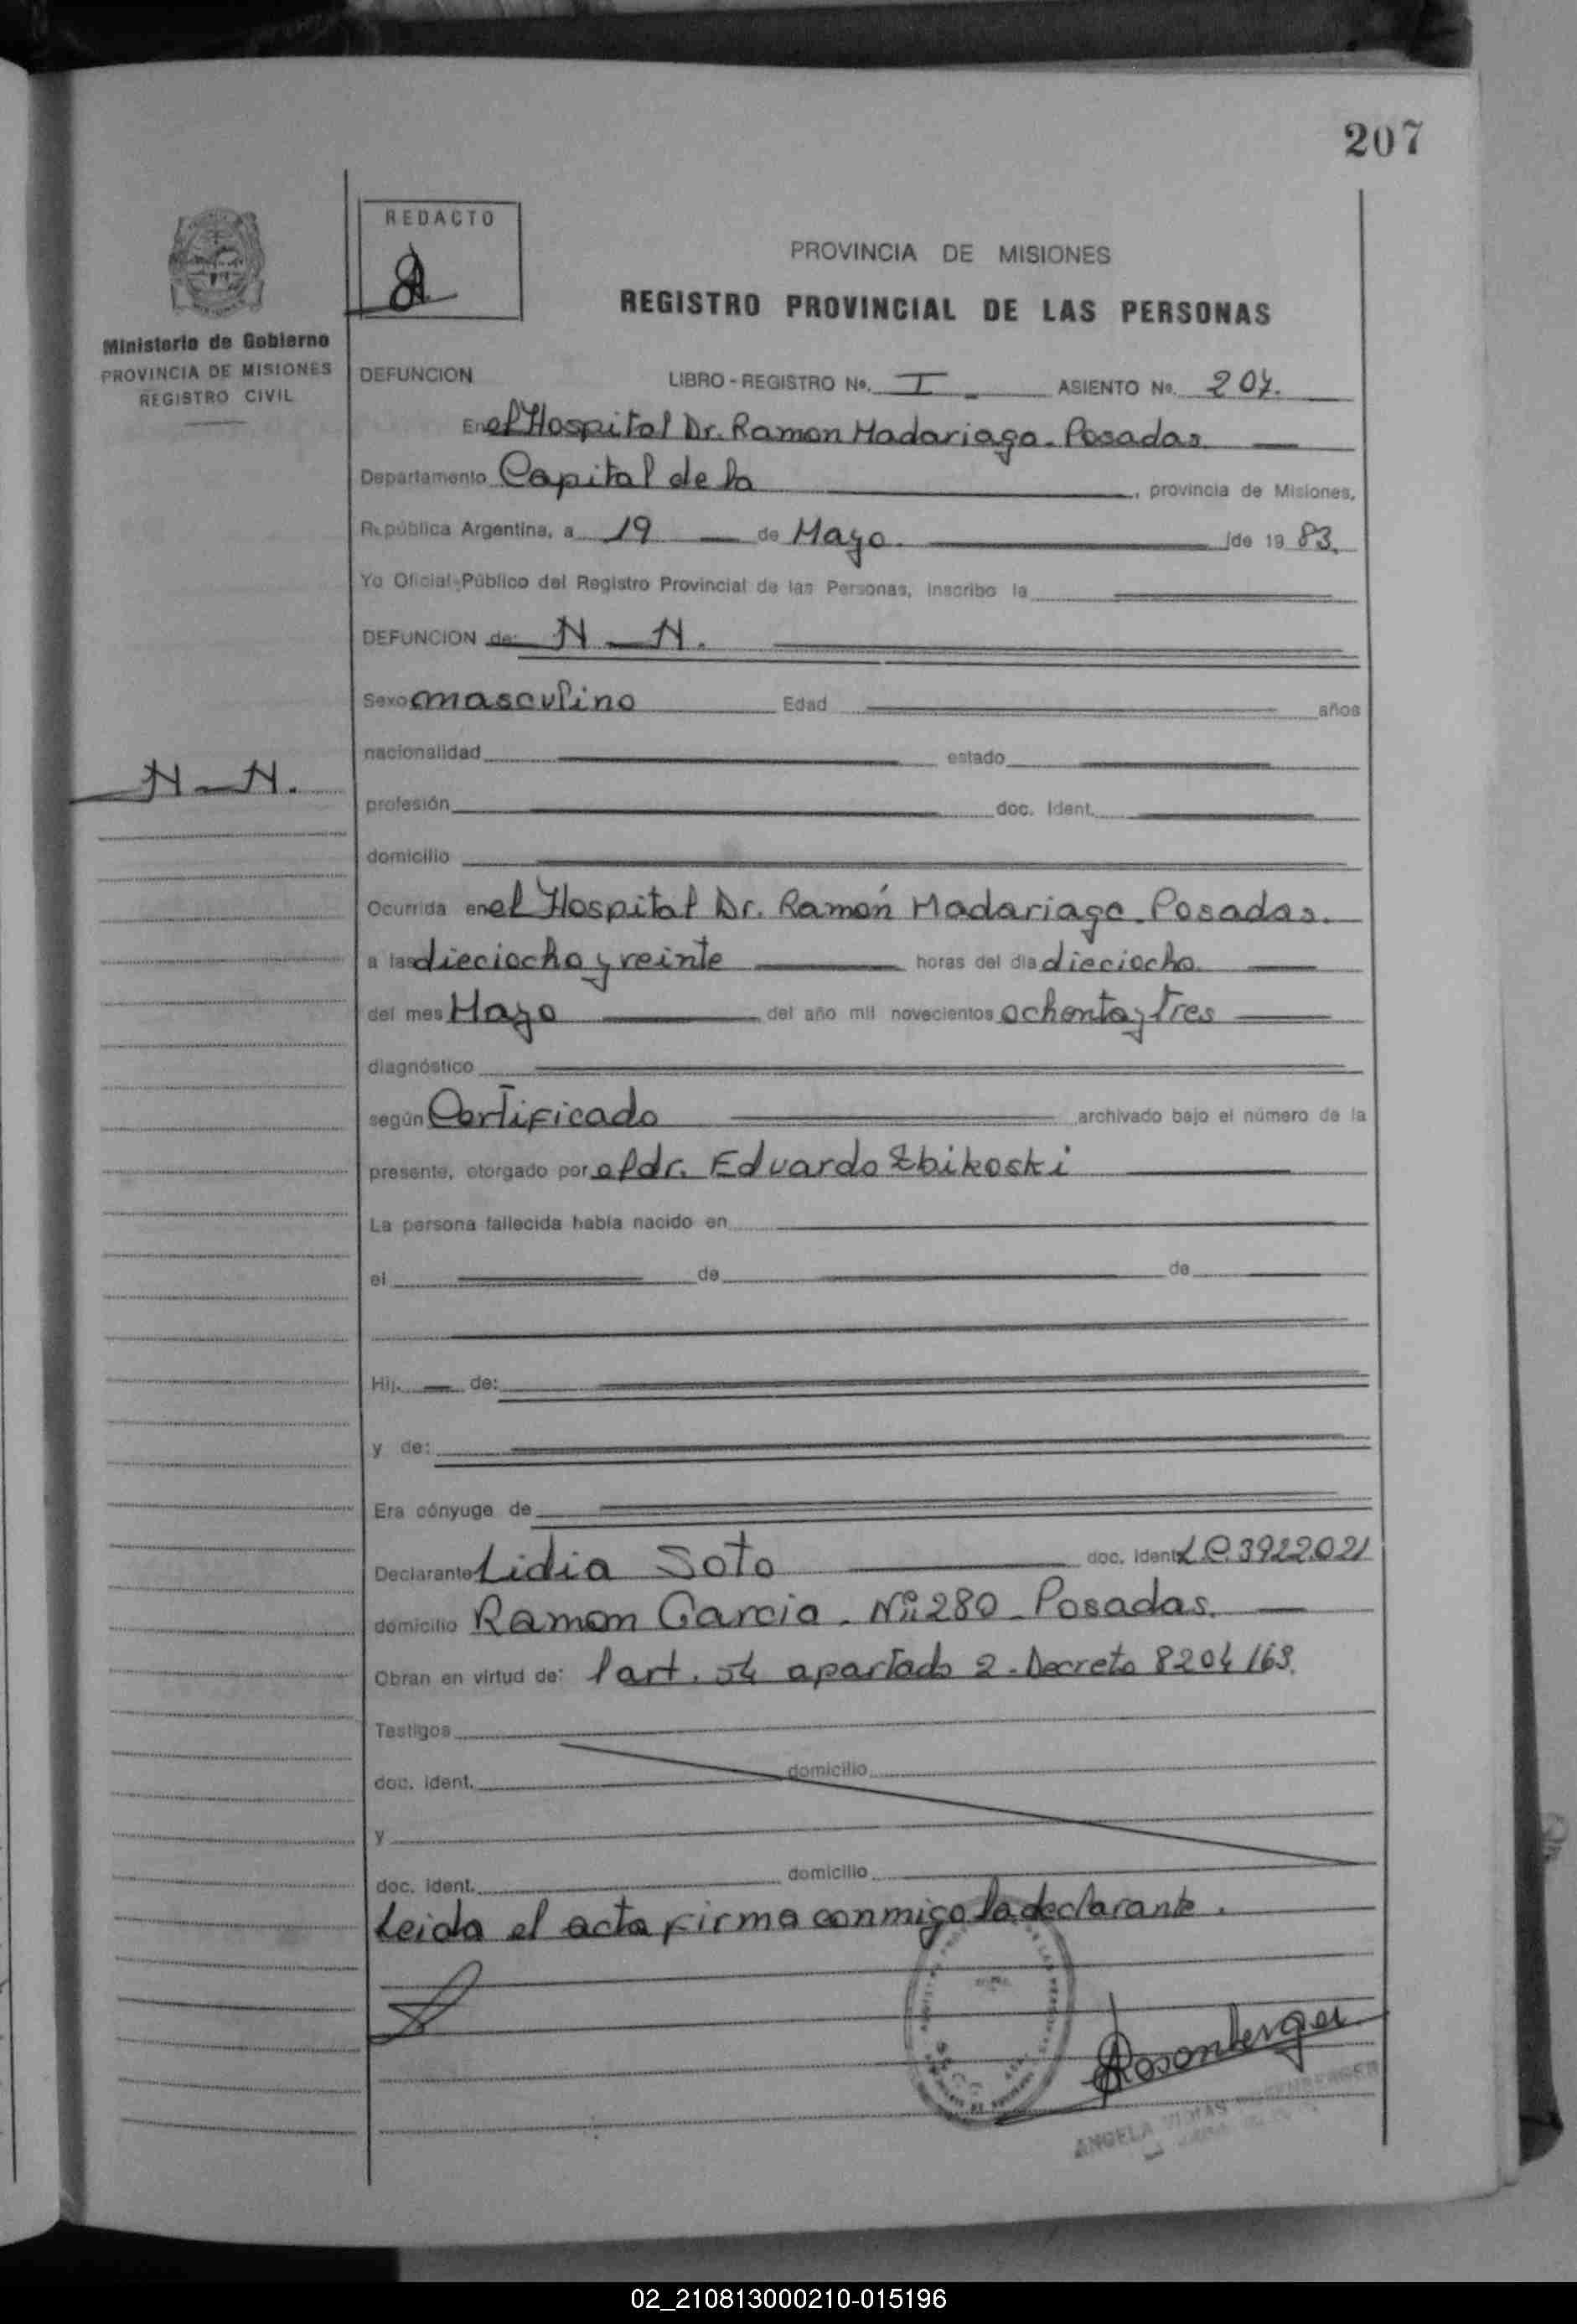 207
REDACTO
PROVINCIA DE MISIONES
REGISTRO PROVINCIAL DE LAS PERSONAS
Ministerio de Gobierno
PROVINCIA DE MISIONES
REGISTRO CIVIL
DEFUNCION LIBRO - REGISTRO Nº. I ASIENTO Nº. 207.
En el Hospital Dr. Ramon Madariaga - Posadas
Departamento Capital de la , provincia de Misiones,
República Argentina, a 19 de Mayo. de 19 83.
Yo Oficial Público del Registro Provincial de las Personas, inscribo la
DEFUNCION de: N - N.
Sexo masculino Edad años
nacionalidad estado
N - N.
profesión doc. Ident.
domicilio
Ocurrida en el Hospital Dr. Ramón Madariaga - Posadas.
a las dieciocho y veinte horas del día dieciocho
del mes Mayo del año mil novecientos ochenta y tres
diagnóstico
según Certificado archivado bajo el número de la
presente, otorgado por el dr. Eduardo Zbikoski
La persona fallecida había nacido en
el de de
Hij. de:
y de:
Era cónyuge de
Declarante Lidia Soto doc. Ident. L.C. 3922.021
domicilio Ramon Garcia - Nº 280 - Posadas.
Obran en virtud de: l art. 54 apartado 2 - Decreto 8204/63.
Testigos
doc. ident. domicilio
y
doc. ident. domicilio
Leida el acta firma conmigo la declarante.
Rosenberger
ANGELA ROSENBERGER
02_210813000210-015196